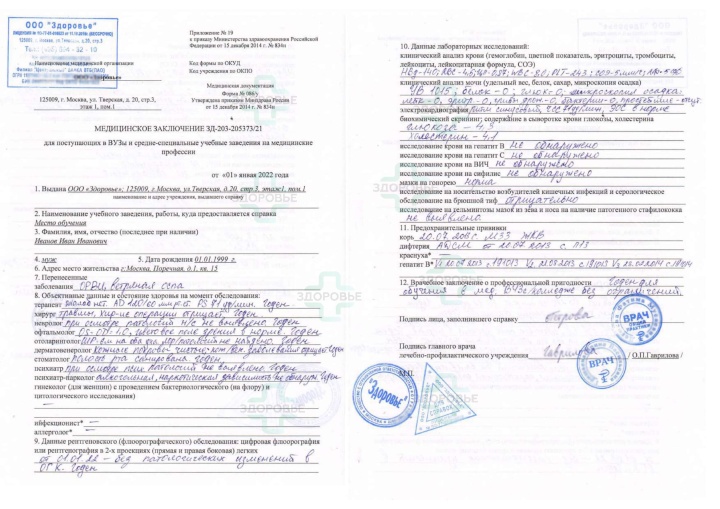 ООО "Здоровье"
Наименование медицинской организации
ООО «Здоровье»
125009, г. Москва, ул. Тверская, д. 20, стр.3,
этаж 1, пом.1
Приложение № 19
к приказу Министерства здравоохранения Российской
Федерации от 15 декабря 2014 г. № 834н
Код формы по ОКУД
Код учреждения по ОКПО
Медицинская документация
Форма № 086/у
Утверждена приказом Минздрава России
от 15 декабря 2014 г. № 834н
МЕДИЦИНСКОЕ ЗАКЛЮЧЕНИЕ ЗД-203-205373/21
для поступающих в ВУЗы и средне-специальные учебные заведения на медицинские
профессии
от «01» января 2022 года
1. Выдана ООО «Здоровье»; 125009, г. Москва, ул.Тверская, д.20, стр.3, этаж1, пом.1
наименование и адрес учреждения, выдавшего справку
2. Наименование учебного заведения, работы, куда предоставляется справка
Место обучения
3. Фамилия, имя, отчество (последнее при наличии)
Иванов Иван Иванович
4. муж 5. Дата рождения 01.01.1999 г.
6. Адрес место жительства г.Москва, Поречная, д.1, кв. 15
7. Перенесенные
заболевания ОРВИ, ветряная оспа
8. Объективные данные и состояние здоровья на момент обследования:
терапевт жалоб нет. АД 120/80 Годен
хирург травмы, хир-ие операции отрицает. Годен
невролог при осмотре патологий н/с не выявлено Годен
офтальмолог OS-OD-1.0, цветовое поле зрения в норме. Годен
отоларинголог
дерматовенеролог кожные покровы чистые, Годен
стоматолог Полость рта санирована Годен
психиатр при осмотре псих патологий не выявлено Годен
психиатр-нарколог алкогольная, наркотическая зависимость не обнаруж. Годен
гинеколог (для женщин) с проведением бактериологического (на флору) и
цитологического исследования)
—
инфекционист* —
аллерголог* —
9. Данные рентгеновского (флюорографического) обследования: цифровая флюорография
или рентгенография в 2-х проекциях (прямая и правая боковая) легких
от 01.01.22 - без патологических изменений в
ОГК. Годен
10. Данные лабораторных исследований:
клинический анализ крови (гемоглобин, цветной показатель, эритроциты, тромбоциты,
лейкоциты, лейкоцитарная формула, СОЭ)
клинический анализ мочи (удельный вес, белок, сахар, микроскопия осадка)
УВ 1015; белок - 0; глюк - 0, микроскопия осадка:
электрокардиография Ритм синусовый, ЭОС в норме
биохимический скрининг; содержание в сыворотке крови глюкоза, холестерина
глюкоза - 4,3
холестерин - 4,1
исследование крови на гепатит В не обнаружено
исследование крови на гепатит С не обнаружено
исследование крови на ВИЧ не обнаружено
исследование крови на сифилис не обнаружено
мазки на гонорею норма
исследование на носительство возбудителей кишечных инфекций и серологическое
обследование на брюшной тиф отрицательно
исследование на гельминтозы мазок из зева и носа на наличие патогенного стафилококка
не выявлено.
11. Предохранительные прививки
корь 20.07. ЖКВ
дифтерия АДСМ от 20.07.2013 с. П13
краснуха* —
гепатит В*
12. Врачебное заключение о профессиональной пригодности Годен для
обучения в мед. ВУЗе/колледже без ограничений.
Подпись лица, заполнившего справку Петрова
Подпись главного врача
лечебно-профилактического учреждения Гаврилова / О.П.Гаврилова /
М.П.
"Здоровье"
ВРАЧ
ВРАЧ
ЗДОРОВЬЕ
ЗДОРОВЬЕ
ЗДОРОВЬЕ